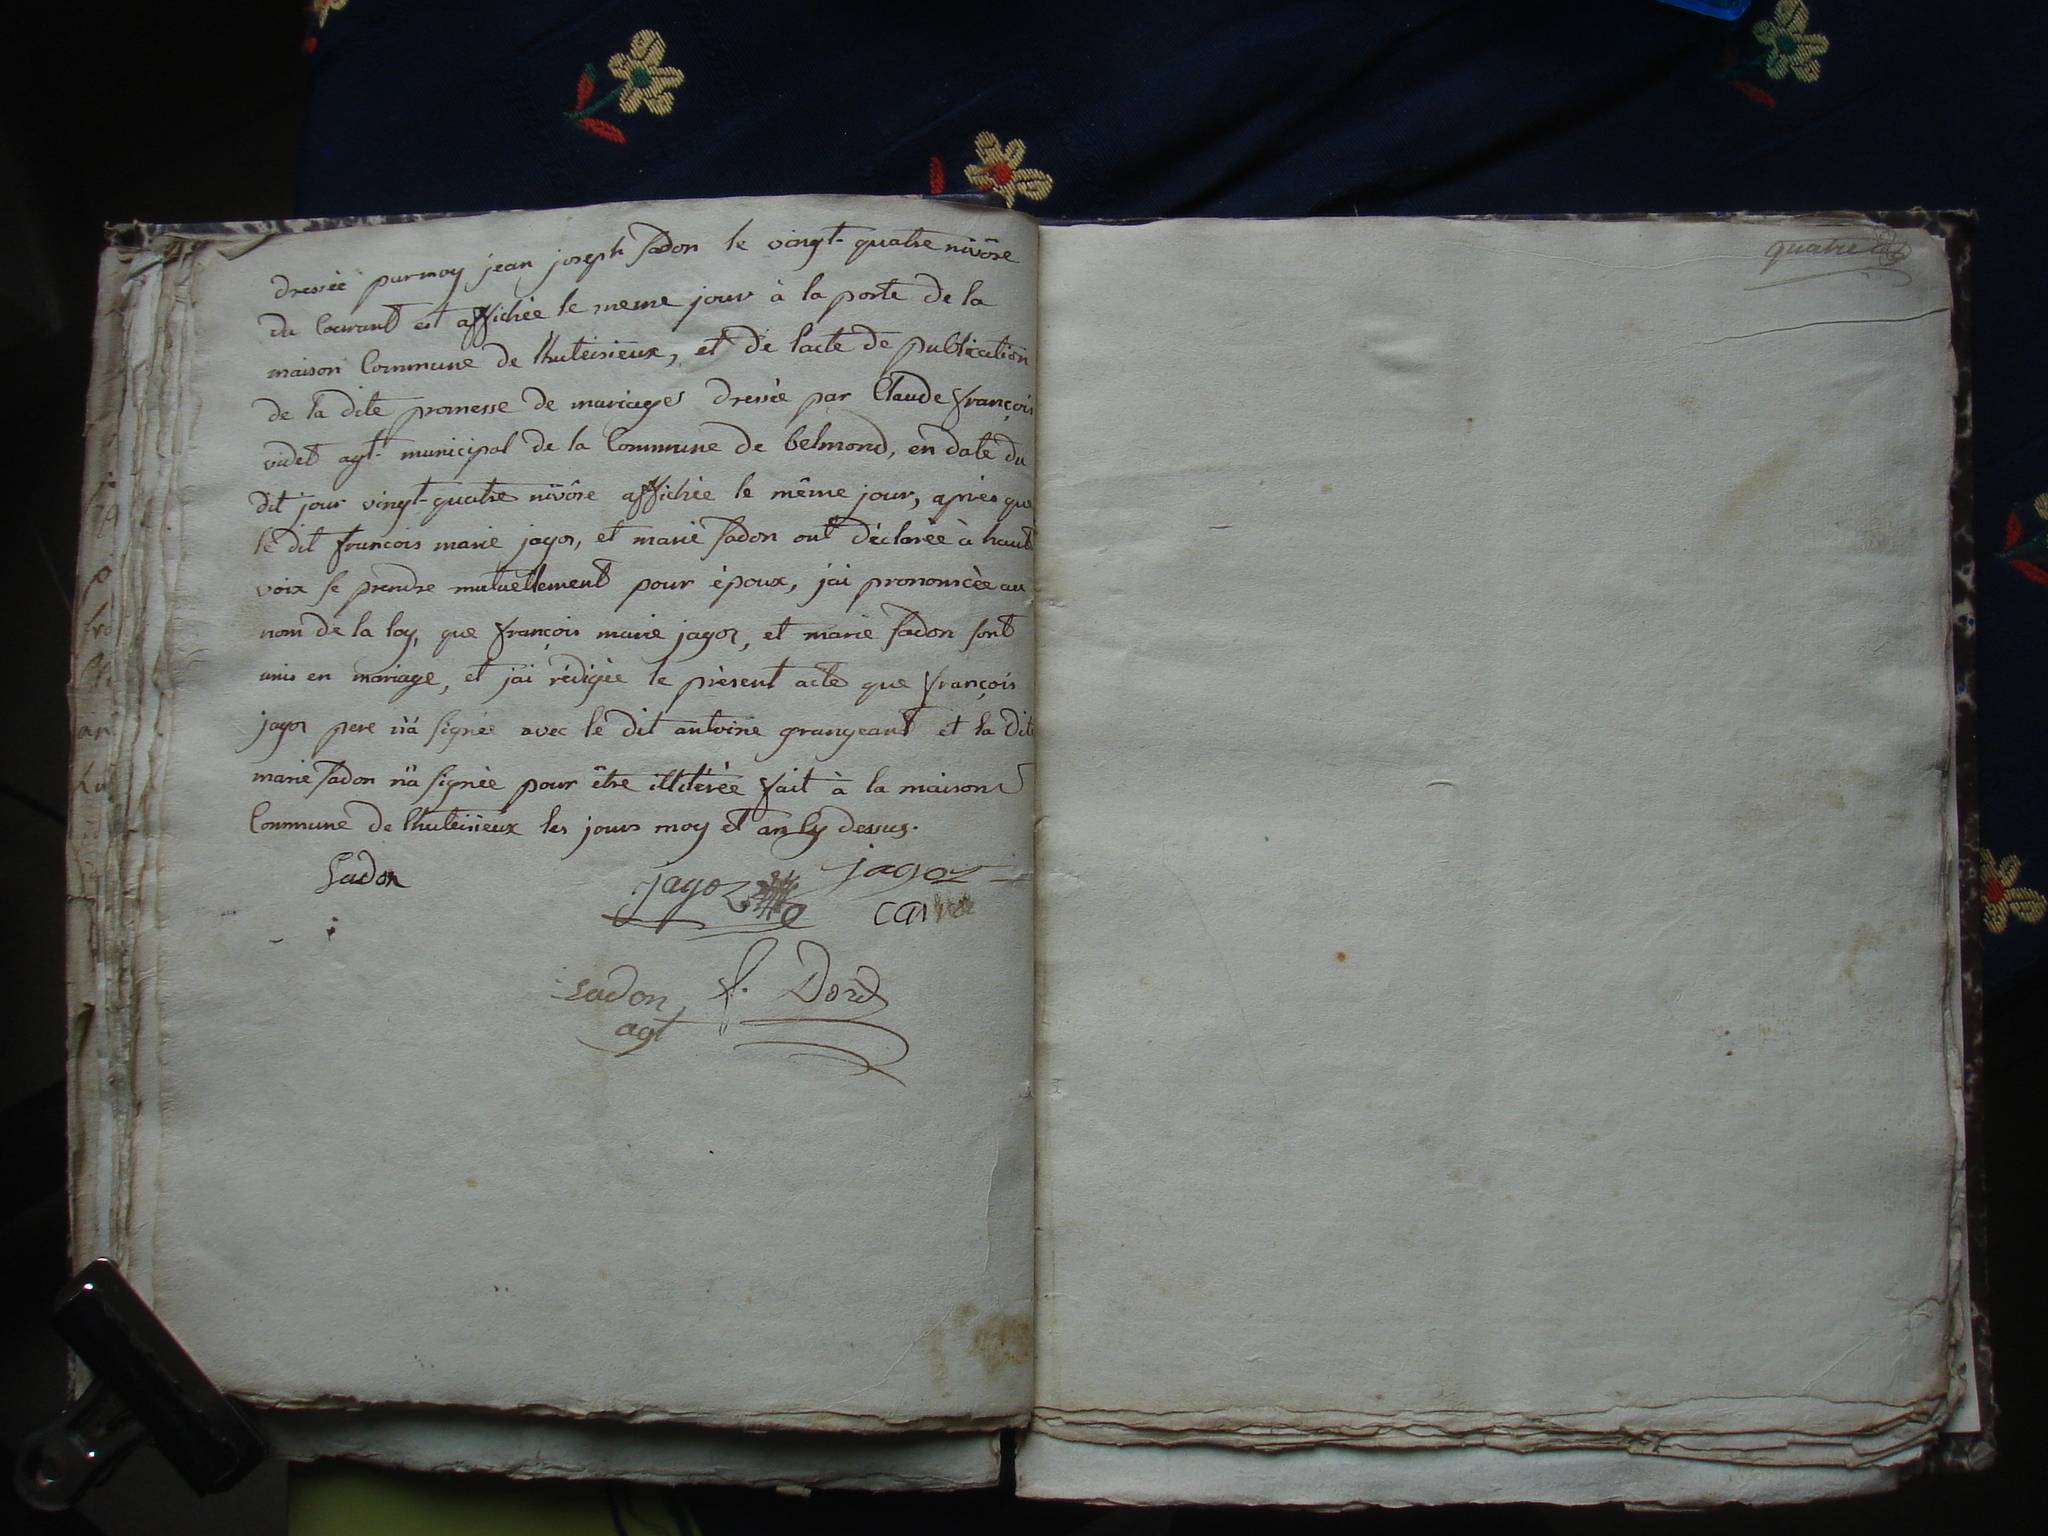 dressée par moy jean joseph sadon le vingt-quatre nivôse
du Courant et affichée le meme jour à la porte de la
maison Commune de lhuteisieux, et de lacte de publication
de la dite promesse de mariages dressée par Claude françois
videt agt. municipal de la Commune de belmond, en date du
dit jour vingt-quatre nivôse affichée le même jour, après que
le dit françois marie jagoz, et marie sadon ont déclarée à haut
voix se prendre mutuellement pour époux, j'ai prononcée au
nom de la loy, que françois marie jagoz, et marie sadon sont
unis en mariage, et j'ai rédigée le présent acte que françois
jagoz pere n'a signée avec le dit antoine grangeant et la dite
marie sadon n'a signée pour être illitérée fait à la maison
Commune de lhuteisieux les jours moy et an Cy dessus.
Sadon
jagoz jagoz
Sadon f. Dord
agt
quatre